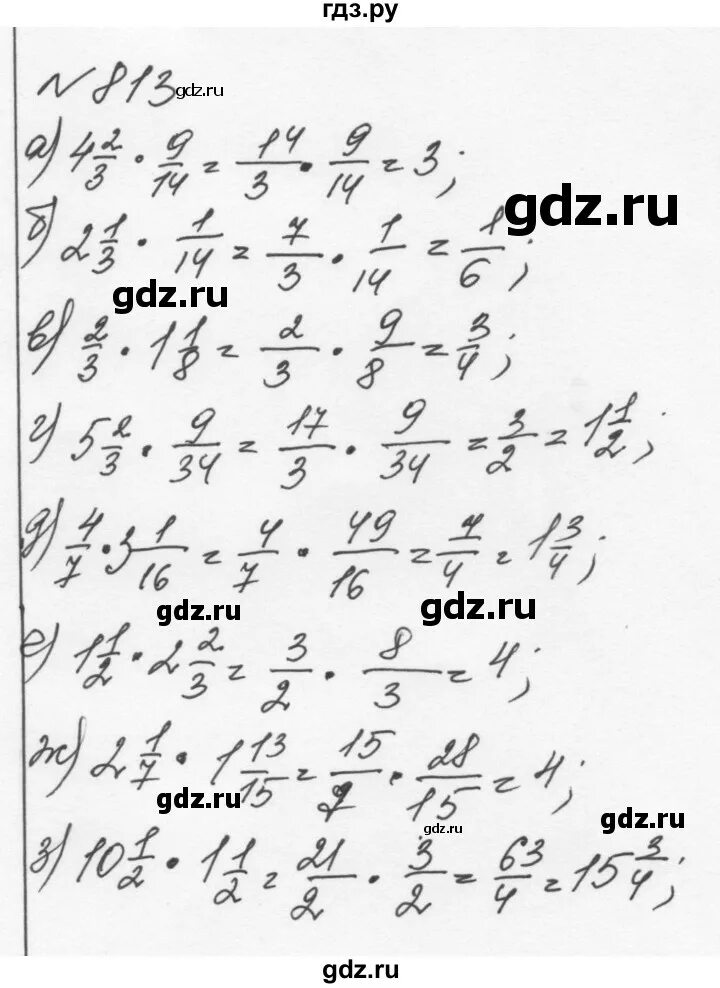 гдз.ру
№ 813 gdz.ru
а) 4 2/3 · 9/14 = 14/3 · 9/14 = 3;
gdz.ru
б) 2 1/3 · 1/14 = 7/3 · 1/14 = 1/6;
gdz.ru
в) 2/3 · 1 1/8 = 2/3 · 9/8 = 3/4;
г) 5 2/3 · 9/34 = 17/3 · 9/34 = 3/2 = 1 1/2;
д) 4/7 · 3 1/16 = 4/7 · 49/16 = 7/4 = 1 3/4;
gdz.ru gdz.ru
е) 1 1/2 · 2 2/3 = 3/2 · 8/3 = 4;
ж) 2 1/7 · 1 13/15 = 15/7 · 28/15 = 4;
gdz.ru gdz.ru gdz.ru
з) 10 1/2 · 1 1/2 = 21/2 · 3/2 = 63/4 = 15 3/4;
gdz.ru